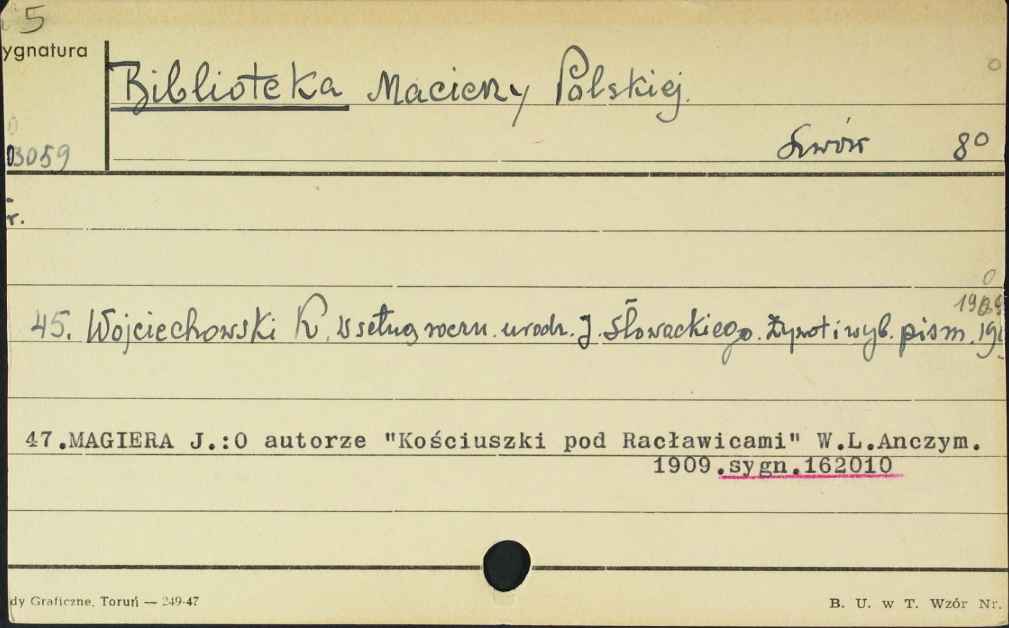 5
ygnatura
Biblioteka Macierzy Polskiej.
3059
Lwów 8°
r.
45. Wojciechowski K. W setną roczn. urodz. J. Słowackiego. Żywot i wyb. pism.
47.MAGIERA J.:O autorze "Kościuszki pod Racławicami" W.L.Anczym.
1909.sygn.162010
dy Graficzne, Toruń — 249-47
B. U. w T. Wzór Nr.